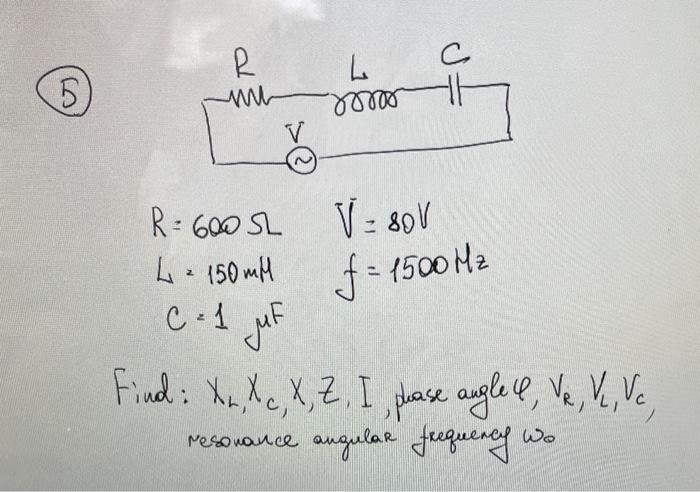 R L C
5
V
R = 600 Ω V = 80V
L = 150 mH f = 1500 Hz
C = 1 μF
Find: X_L, X_C, X, Z, I, phase angle φ, V_R, V_L, V_C,
resonance angular frequency ω₀